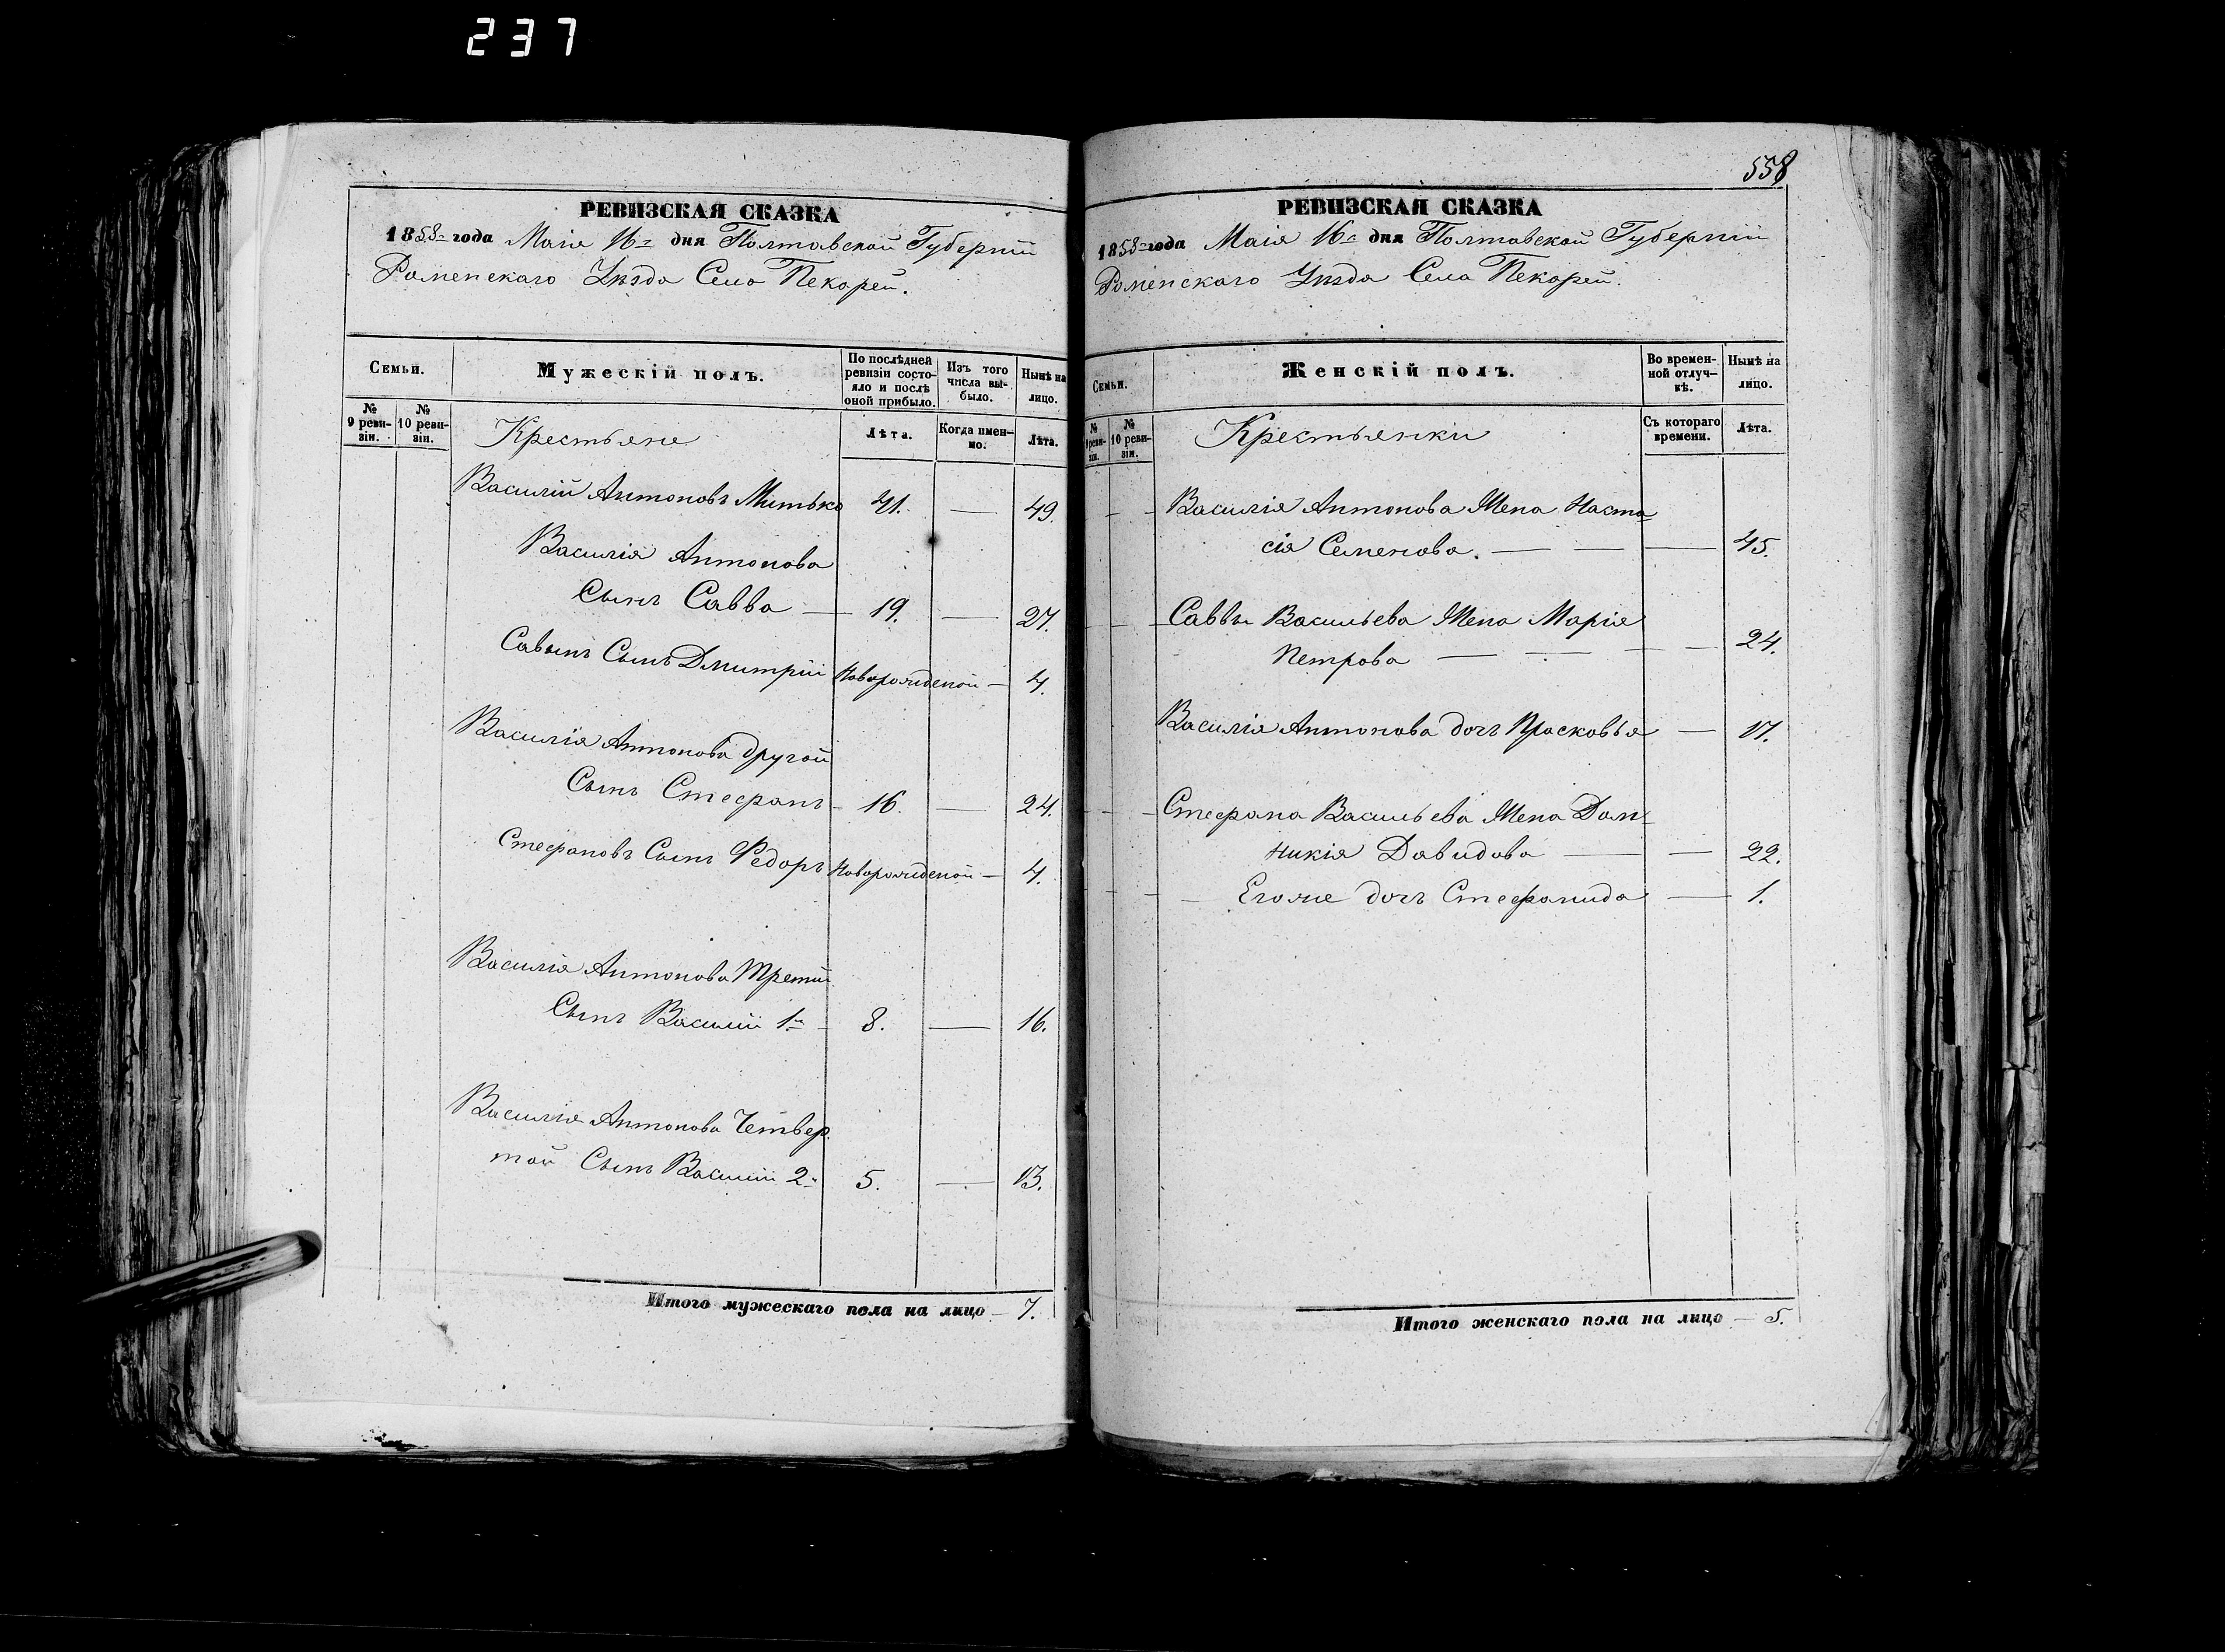 237
РЕВИЗСКАЯ СКАЗКА
1858го года Маія 16го дня Полтавской Губерніи
Роменскаго Уѣзда Села Пекарей.
Семьи.
Мужескій полъ.
По послѣдней ревизіи состояло и послѣ оной прибыло.
Изъ того числа выбыло.
Нынѣ на лицо.
№ 9 ревизіи.
№ 10 ревизіи.
Крестьяне
Лѣта.
Когда именно.
Лѣта.
Василій Антоновъ Митько 41. — 49.
Василія Антонова
Сынъ Савва — 19. — 27.
Савынъ Сынъ Дмитрій Новорожденой — 4.
Василія Антонова другой
Сынъ Стефанъ — 16. — 24.
Стефановъ Сынъ Федоръ Новорожденой — 4.
Василія Антонова Третій
Сынъ Василій 1й — 8. — 16.
Василія Антонова Четвер-
той Сынъ Василій 2й 5. — 13.
Итого мужескаго пола на лицо — 7.
558
РЕВИЗСКАЯ СКАЗКА
1858го года Маія 16го дня Полтавской Губерніи
Роменскаго Уѣзда Села Пекарей.
Семьи.
Женскій полъ.
Во временной отлучкѣ.
Нынѣ на лицо.
№ 9 ревизіи.
№ 10 ревизіи.
Крестьянки
Съ котораго времени.
Лѣта.
Василія Антонова Жена Наста-
сія Семенова. — — — 45.
Саввы Васильева Жена Марія
Петрова — — — — 24.
Василія Антонова дочь Прасковья — 17.
Стефана Васильева Жена Дом-
никія Давидова — — 22.
— Егоже дочь Стефанида — 1.
Итого женскаго пола на лицо — 5.